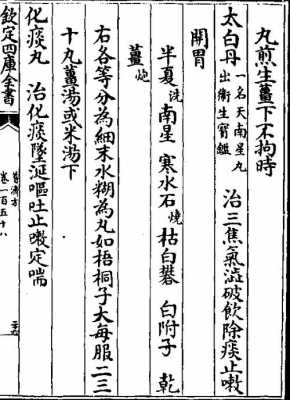 丸煎生薑下不拘時
太白丹一名天南星丸出衛生寶鑑 治三焦氣澁破飲除痰止嗽
開胃
半夏洗 南星 寒水石燒 枯白礬 白附子 乾
薑炮
右各等分為細末水糊為丸如梧桐子大每服二三
十丸薑湯或米湯下
化痰丸 治化痰墜涎嘔吐止嗽定喘
欽定四庫全書
普濟方
卷一百五十八